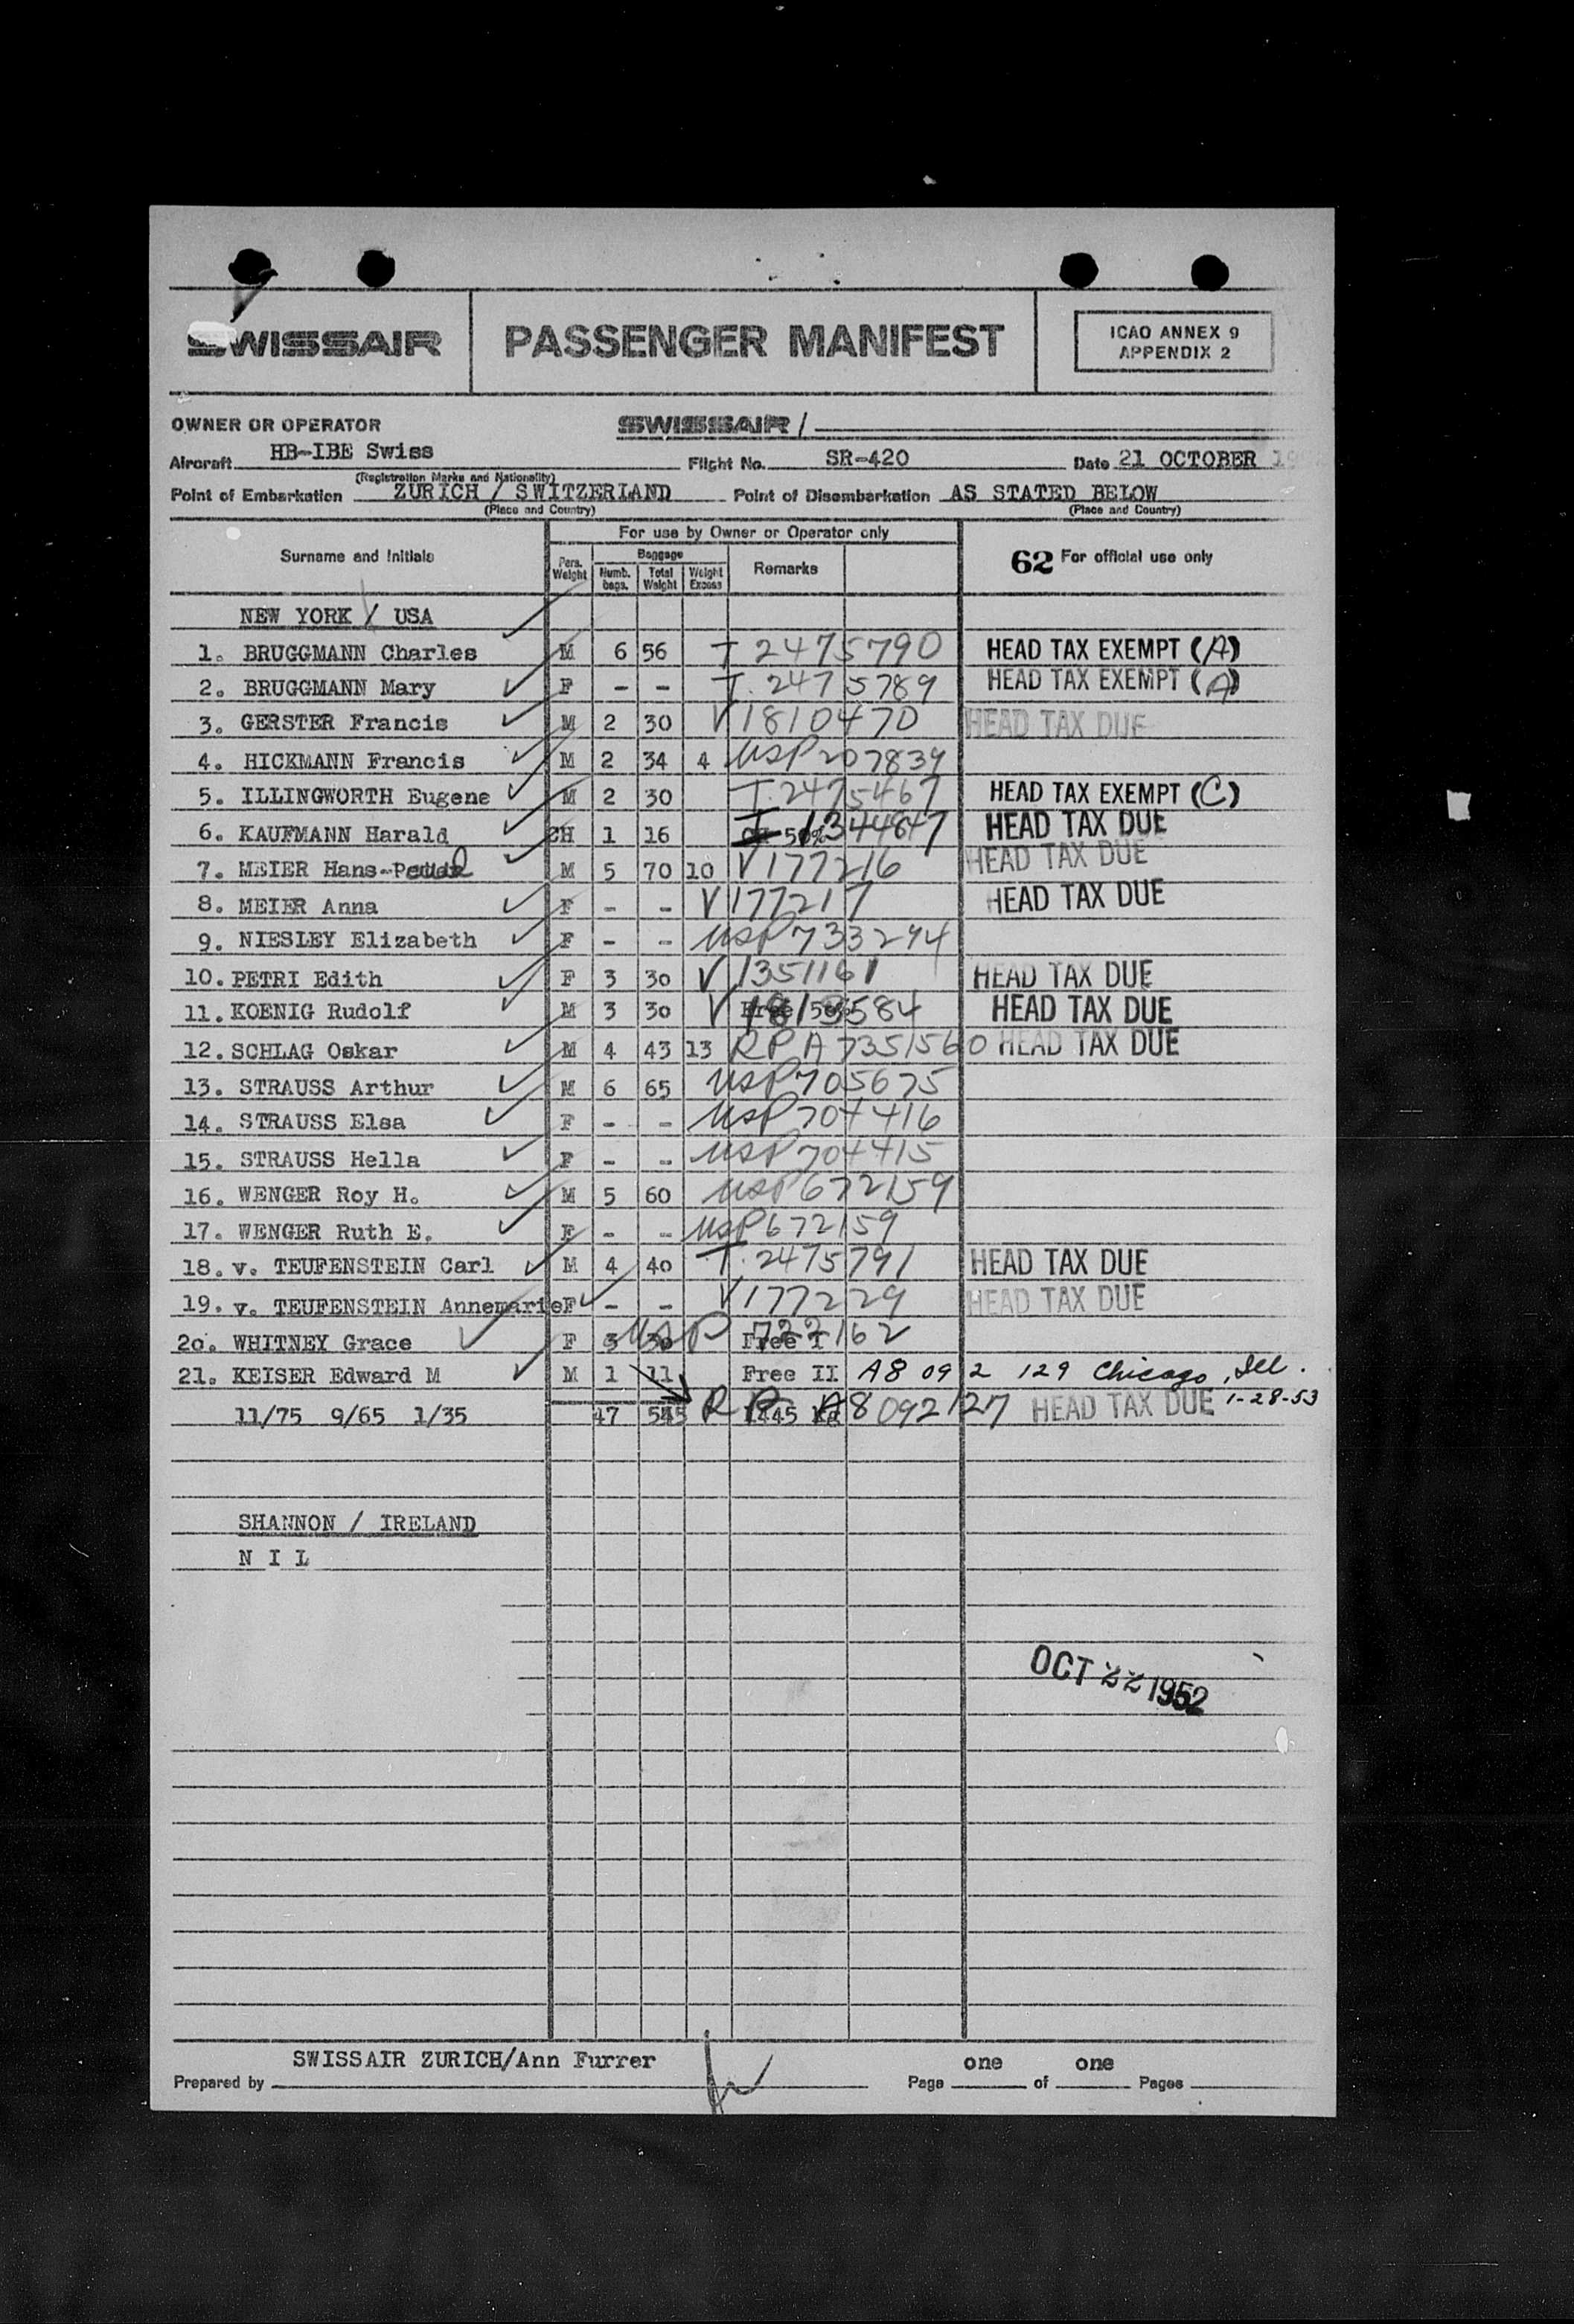 SWISSAIR PASSENGER MANIFEST ICAO ANNEX 9
APPENDIX 2
OWNER OR OPERATOR SWISSAIR /
Aircraft HB-IBE Swiss Flight No. SR-420 Date 21 OCTOBER 19
(Registration Marks and Nationality)
Point of Embarkation ZURICH / SWITZERLAND Point of Disembarkation AS STATED BELOW
(Place and Country) (Place and Country)
For use by Owner or Operator only
Surname and Initials Pers. Weight Baggage Numb. bags. Total Weight Weight Excess Remarks 62 For official use only
NEW YORK / USA
1. BRUGGMANN Charles M 6 56 T 2475790 HEAD TAX EXEMPT (A)
2. BRUGGMANN Mary F - - T. 2475789 HEAD TAX EXEMPT (A)
3. GERSTER Francis M 2 30 V 1810470 HEAD TAX DUE
4. HICKMANN Francis M 2 34 4 USP 207839
5. ILLINGWORTH Eugene M 2 30 T 2475467 HEAD TAX EXEMPT (C)
6. KAUFMANN Harald CH 1 16 I 1344847 HEAD TAX DUE
7. MEIER Hans- M 5 70 10 V 177216 HEAD TAX DUE
8. MEIER Anna F - - V 177217 HEAD TAX DUE
9. NIESLEY Elizabeth F - - USP 733294
10. PETRI Edith F 3 30 V 1351161 HEAD TAX DUE
11. KOENIG Rudolf M 3 30 V 1813584 HEAD TAX DUE
12. SCHLAG Oskar M 4 43 13 RP A 7351560 HEAD TAX DUE
13. STRAUSS Arthur M 6 65 USP 705675
14. STRAUSS Elsa F - - USP 704416
15. STRAUSS Hella F - - USP 704415
16. WENGER Roy H. M 5 60 USP 672159
17. WENGER Ruth E. F - - USP 672159
18. v. TEUFENSTEIN Carl M 4 40 T. 2475791 HEAD TAX DUE
19. v. TEUFENSTEIN Annemarie F - - V 177229 HEAD TAX DUE
20. WHITNEY Grace F 3 30 USP 722162 Free I
21. KEISER Edward M M 1 11 Free II A8 092 129 Chicago, Ill.
11/75 9/65 1/35 47 545 RP A8092127 HEAD TAX DUE 1-28-53
SHANNON / IRELAND
N I L
OCT 22 1952
SWISSAIR ZURICH/Ann Furrer
Prepared by Page one of one Pages